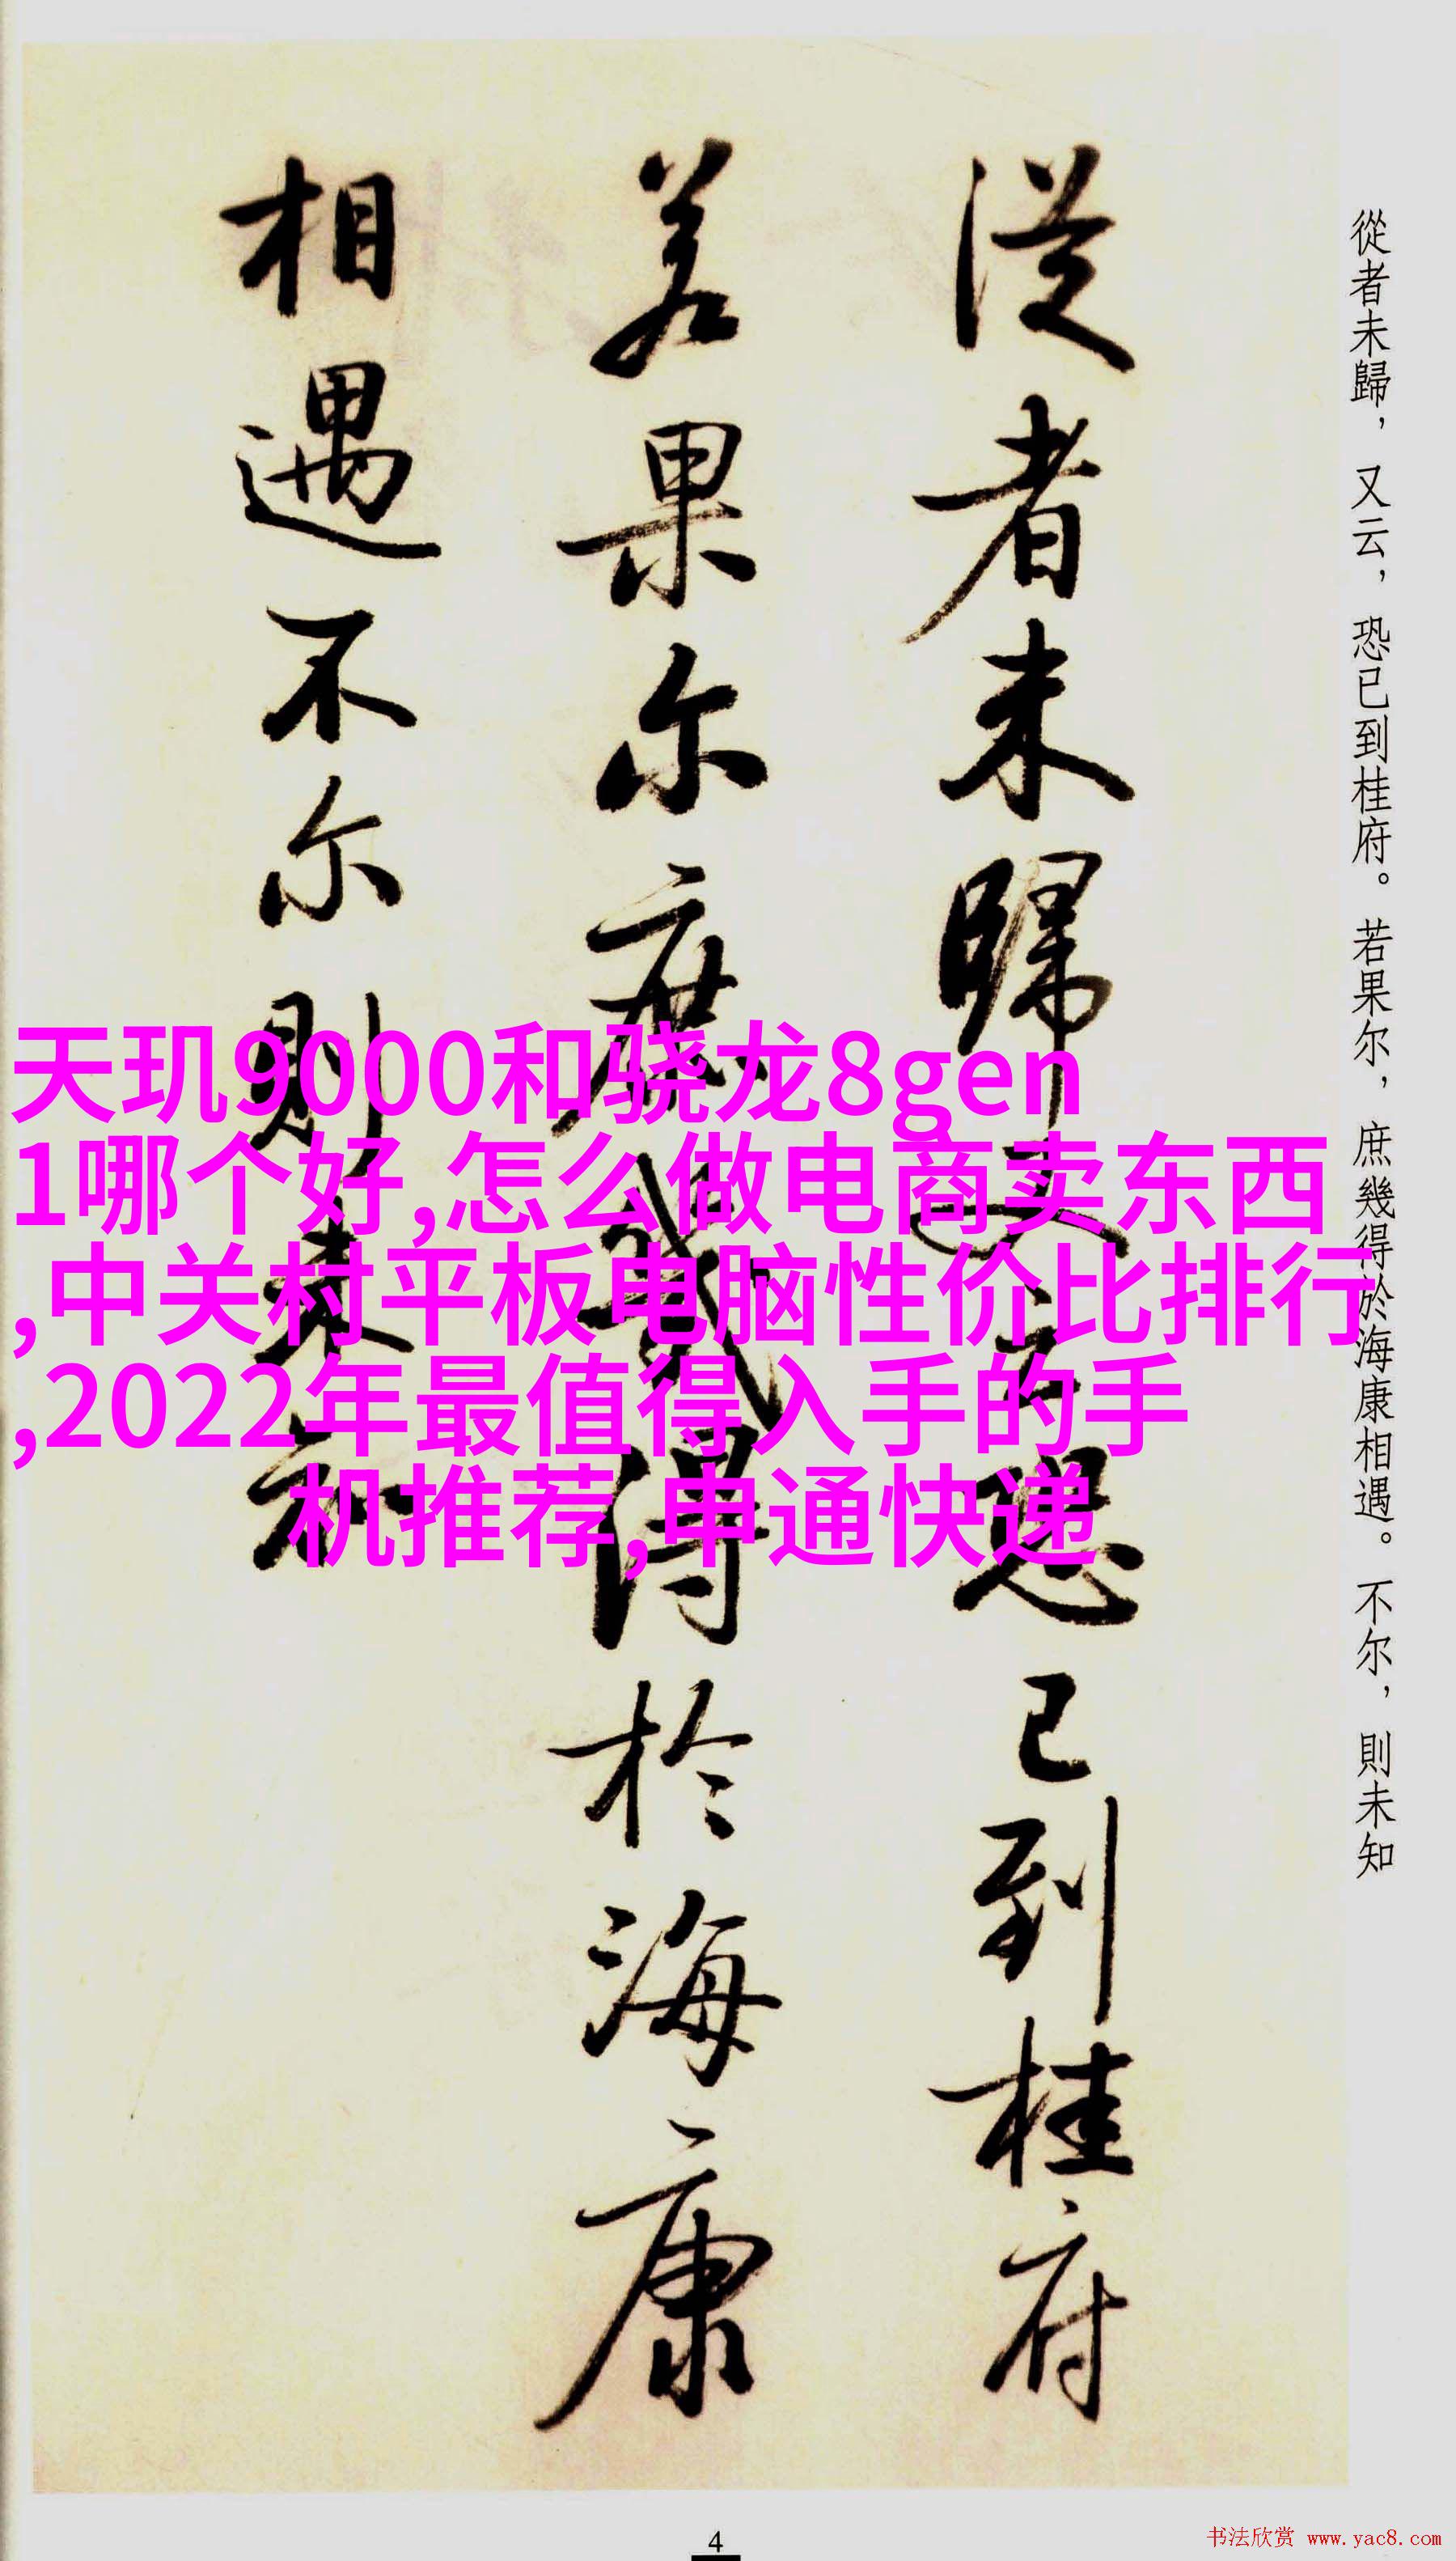 從者未歸，又云，恐已到桂府。若果尔，庶幾得於海康相遇。不尔，則未知
従者未歸又云恐已到桂府
若果尔庶幾得於海康
相遇不尔則未知
天玑9000和骁龙8gen
1哪个好,怎么做电商卖东西
,中关村平板电脑性价比排行
,2022年最值得入手的手
机推荐,申通快递
4
书法欣赏 www.yac8.com